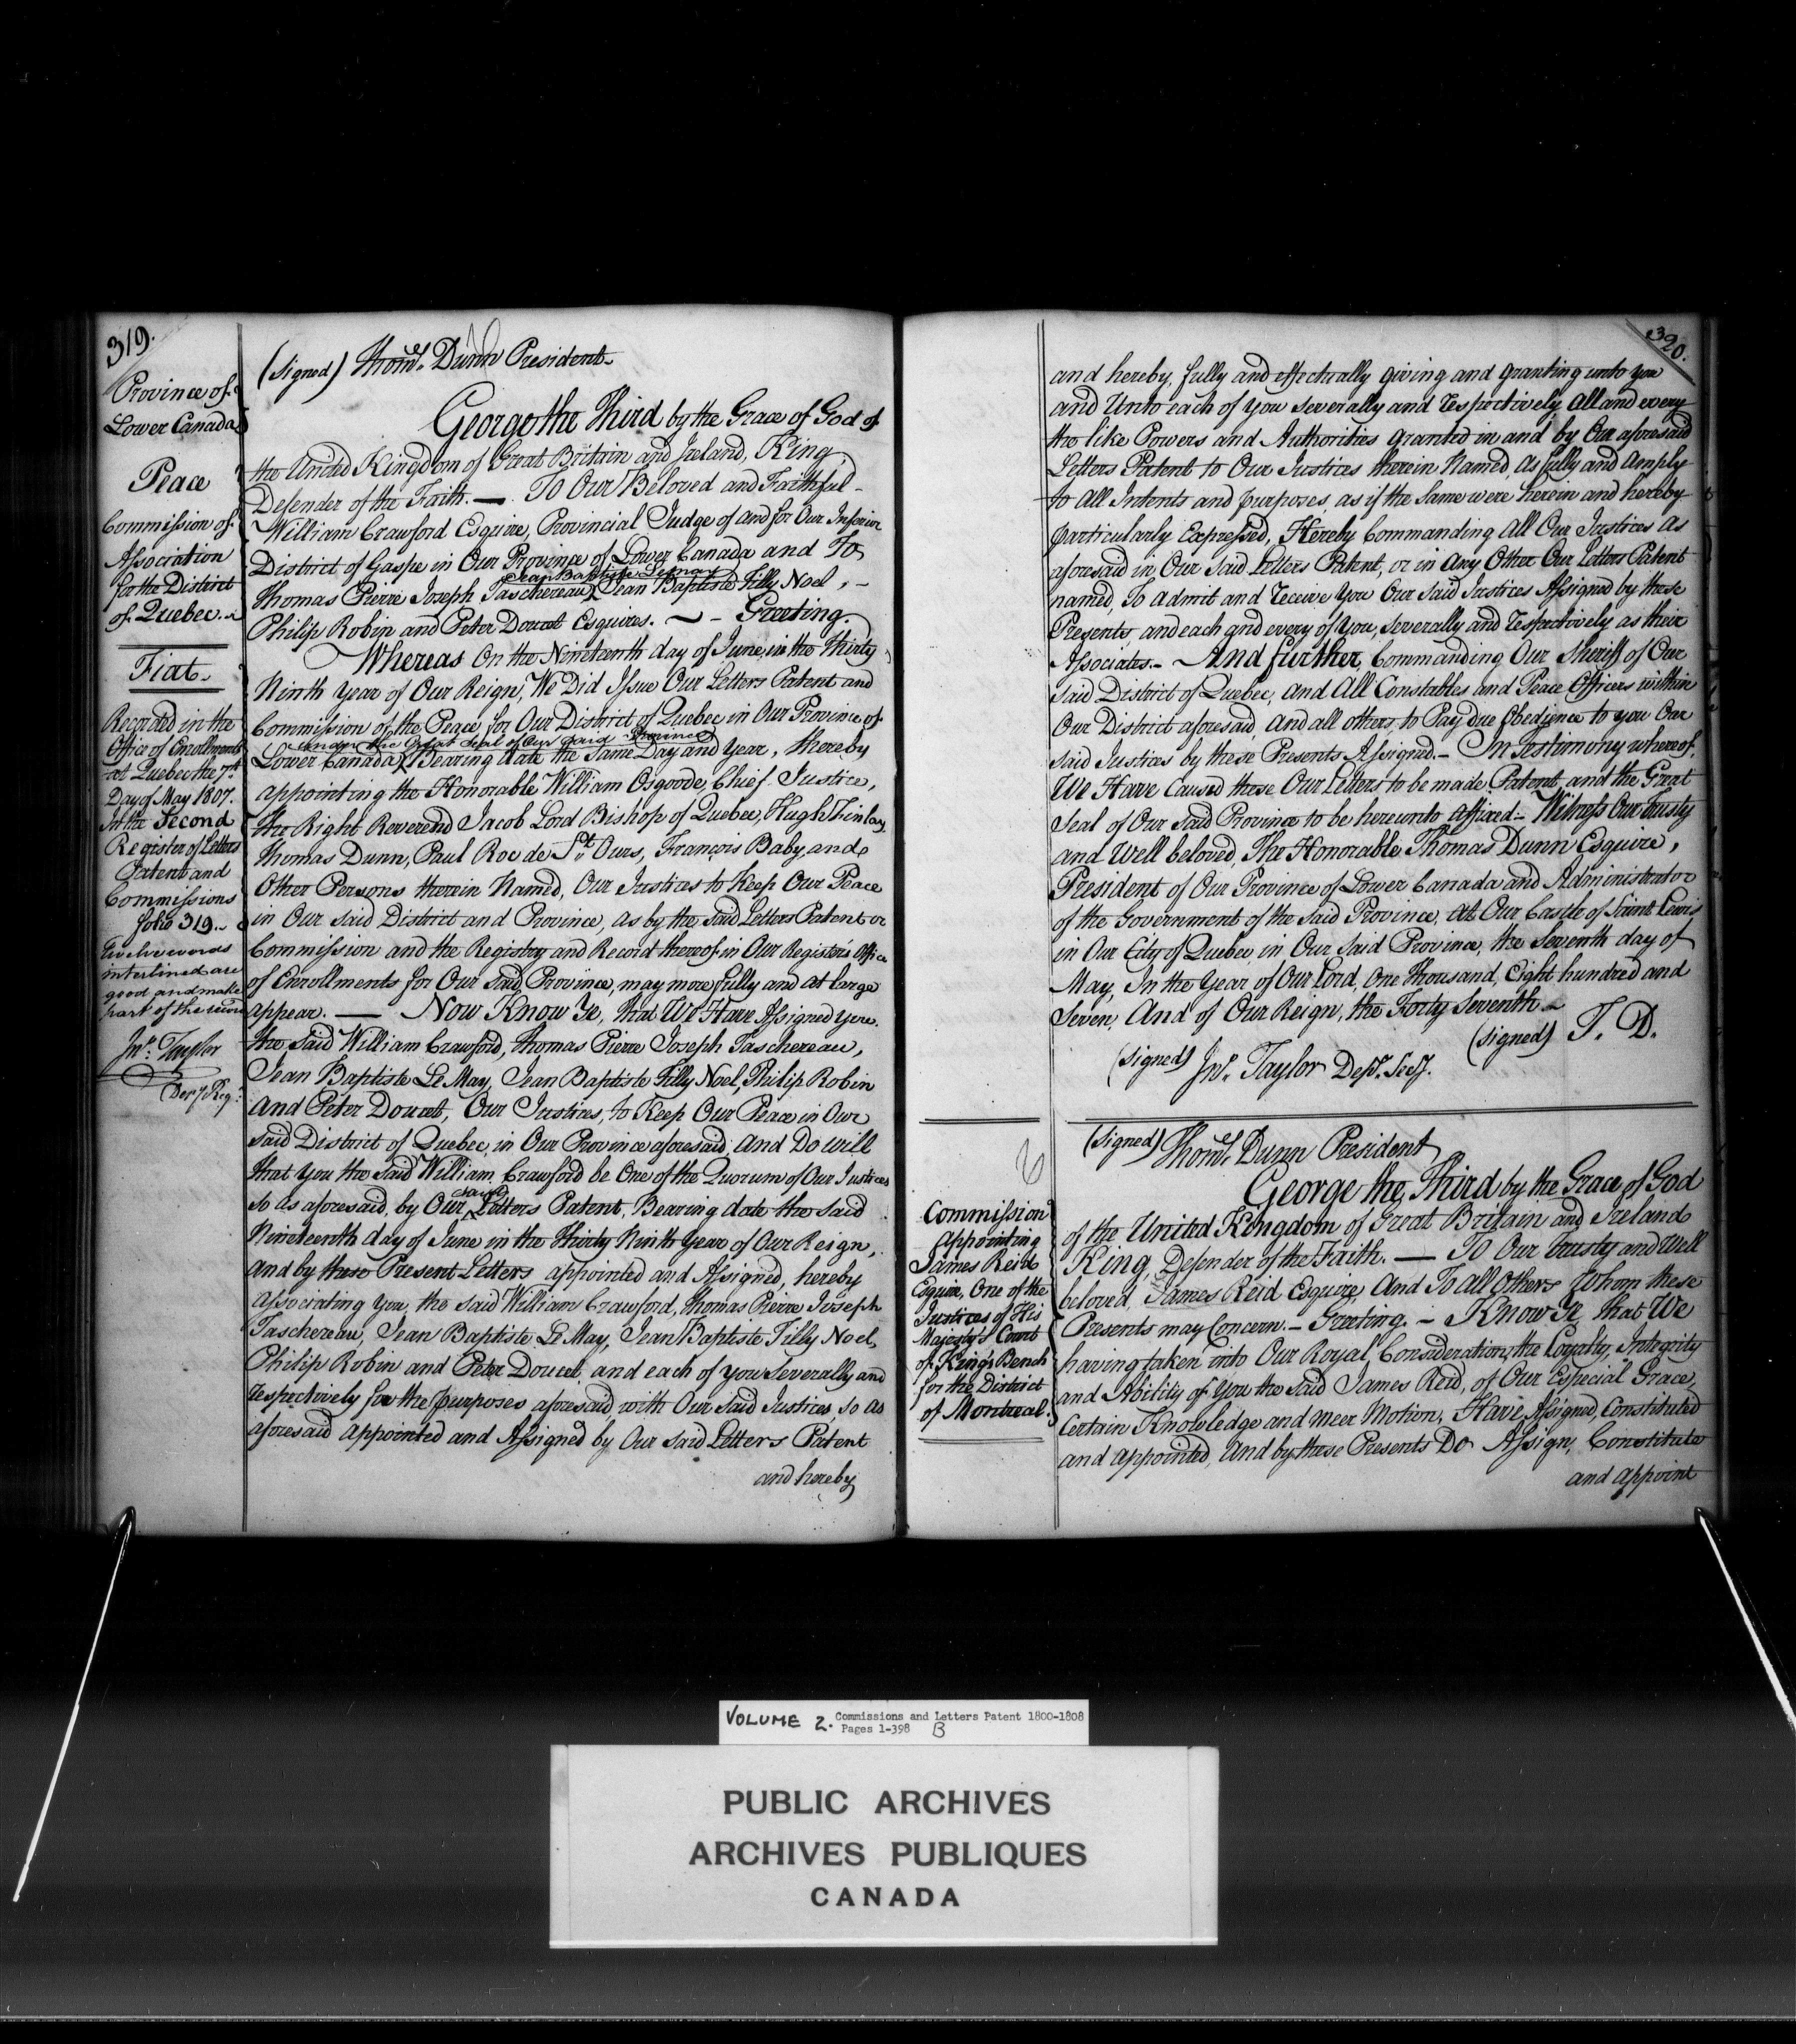 319.
Province of
Lower Canada
Peace
Commission of
Association
for the District
of Quebec.
Fiat.
Recorded in the
Office of Enrollments
at Quebec the 7th
Day of May 1807.
In the Second
Register of Letters
Patent and
Commissions
folio 319.
Twelve words
interlined are
good and make
part of the record
Jno. Taylor
Depy Regr.
(Signed) Thoms. Dunn President.
George the Third by the Grace of God of
the United Kingdom of Great Britain and Ireland, King,
Defender of the Faith. — To Our Beloved and Faithful
William Crawford Esquire, Provincial Judge of and for Our Inferior
District of Gaspe in Our Province of Lower Canada and To
Jean Baptiste Lemay
Thomas Pierre Joseph Taschereau, Jean Baptiste Filly Noel, –
Philip Robin and Peter Doucet Esquires. — – Greeting.
Whereas On the Nineteenth day of June, in the Thirty
Ninth Year of Our Reign, We Did Issue Our Letters Patent and
Commission of the Peace for Our District of Quebec in Our Province of
under the Great Seal of Our said Province
Lower Canada, Bearing date the Same Day and Year, thereby
appointing the Honorable William Osgoode, Chief Justice,
the Right Reverend Jacob Lord Bishop of Quebec, Hugh Finlay,
Thomas Dunn, Paul Roc de St. Ours, François Baby, and
Other Persons therein Named, Our Justices to Keep Our Peace
in Our said District and Province, as by the said Letters Patent or
Commission and the Registry and Record thereof in Our Registers Office
of Enrollments for Our said Province, may more fully and at large
appear. — Now Know Ye, that We Have Assigned you.
the said William Crawford, Thomas Pierre Joseph Taschereau,
Jean Baptiste Le May, Jean Baptiste Filly Noel, Philip Robin
And Peter Doucet, Our Justices, to Keep Our Peace in Our
said District of Quebec, in Our Province aforesaid; and Do will
that you the said William Crawford be One of the Quorum of Our Justices
said
so as aforesaid, by Our Letters Patent, Bearing date the said
Nineteenth day of June in the Thirty Ninth Year of Our Reign,
and by these Present Letters appointed and Assigned, hereby
Associating you, the said William Crawford, Thomas Pierre Joseph
Taschereau, Jean Baptiste Le May, Jean Baptiste Filly Noel,
Philip Robin and Peter Doucet, and each of you severally and
respectively for the purposes aforesaid with Our said Justices, so as
aforesaid appointed and Assigned by Our said Letters Patent
and hereby
320.
and hereby, fully and effectually giving and granting unto you
and Unto each of you severally and respectively all and every
the like Powers and Authorities granted in and by Our aforesaid
Letters Patent to Our Justices therein Named, as fully and Amply
to All Intents and purposes, as if the same were herein and hereby
particularly Expressed, Hereby Commanding All Our Justices as
aforesaid in Our said Letters Patent, or in Any Other Our Letters Patent
named, To Admit and receive you Our said Justices Assigned by these
Presents, and each and every of you, severally and respectively as their
Associates. – And further Commanding Our Sheriff of Our
said District of Quebec, and All Constables and Peace Officers within
Our District aforesaid, and all others, to Pay due Obedience to you Our
said Justices by these Presents Assigned. – In Testimony whereof,
We Have Caused these Our Letters to be made Patent, and the Great
Seal of Our said Province to be hereunto affixed. – Witness Our Trusty
and Well beloved, The Honorable Thomas Dunn Esquire,
President of Our Province of Lower Canada and Administrator
of the Government of the said Province, at Our Castle of Saint Lewis
in Our City of Quebec, in Our said Province, the Seventh day of
May, In the Year of Our Lord, One thousand, Eight hundred and
Seven, And of Our Reign, the Forty Seventh.
(signed) T. D.
(signed) Jno. Taylor Depy. Secy.
Commission
appointing
James Reid
Esquire, One of the
Justices of His
Majesty's Court
of King's Bench
for the District
of Montreal.
(Signed) Thoms. Dunn President
George the Third by the Grace of God
of the United Kingdom of Great Britain and Ireland
King, Defender of the Faith. — To Our trusty and Well
beloved, James Reid Esquire, And To all Others Whom these
Presents may Concern. – Greeting. – Know Ye, that We
having taken into Our Royal Consideration, the Loyalty, Integrity
and Ability of You the said James Reid, of Our Especial Grace,
Certain Knowledge and meer Motion, Have Assigned, Constituted
and appointed, And by these Presents Do Assign, Constitute
and appoint
VOLUME 2. Commissions and Letters Patent 1800-1808
Pages 1-398 B
PUBLIC ARCHIVES
ARCHIVES PUBLIQUES
CANADA